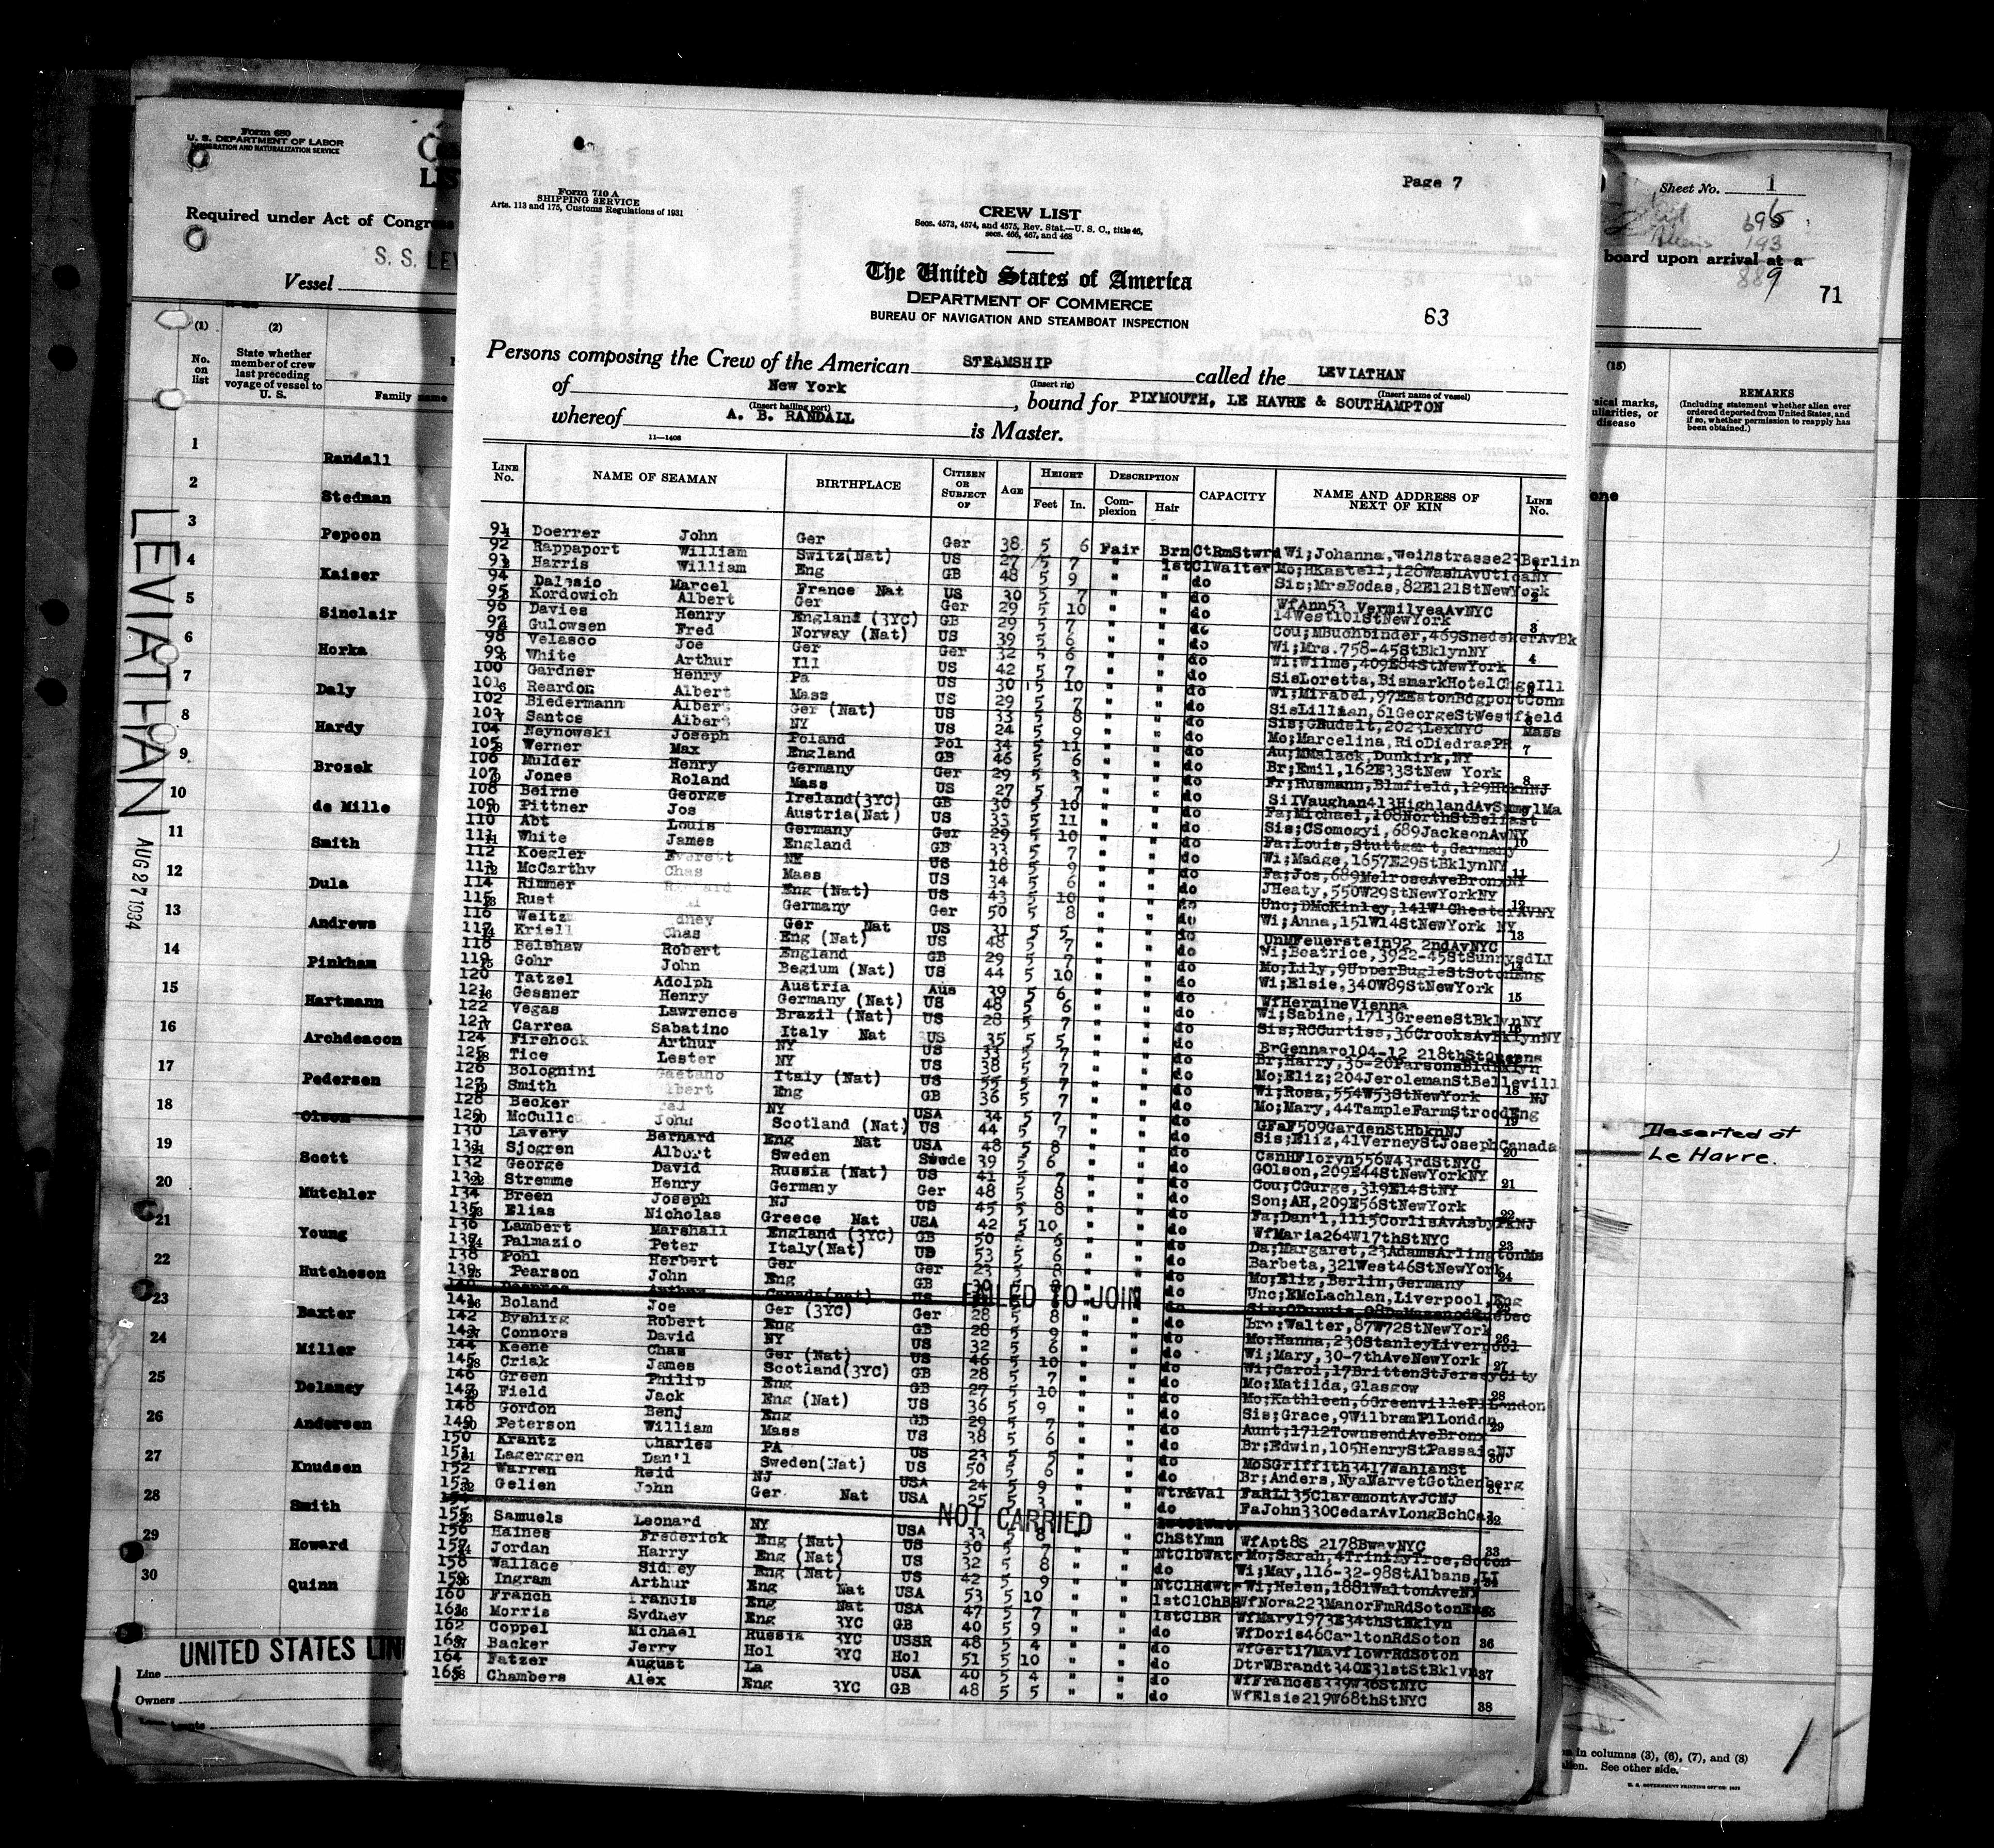 Form 680
U. S. DEPARTMENT OF LABOR
IMMIGRATION AND NATURALIZATION SERVICE
Required under Act of Congress
S. S. LEV
Vessel
(1) (2)
No. on list
State whether member of crew last preceding voyage of vessel to U. S.
Family name
1 Randall
2 Stedman
3 Pepoon
4 Kaiser
5 Sinclair
6 Horka
7 Daly
8 Hardy
9 Brosek
10 de Mille
11 Smith
12 Dula
13 Andrews
14 Pinkham
15 Hartmann
16 Archdeacon
17 Pedersen
18 Olsen
19 Scott
20 Mutchler
21 Young
22 Hutcheson
23 Baxter
24 Miller
25 Delaney
26 Andersen
27 Knudsen
28 Smith
29 Howard
30 Quinn
UNITED STATES LIN
Line
Owners
LEVIATHAN AUG 27 1934
Page 7
Form 710 A
SHIPPING SERVICE
Arts. 113 and 175, Customs Regulations of 1931
CREW LIST
Secs. 4573, 4574, and 4575, Rev. Stat.—U. S. C., title 46,
secs. 466, 467, and 468
The United States of America
DEPARTMENT OF COMMERCE
BUREAU OF NAVIGATION AND STEAMBOAT INSPECTION
63
Persons composing the Crew of the American STEAMSHIP called the LEVIATHAN
(Insert rig) (Insert name of vessel)
of New York, bound for PLYMOUTH, LE HAVRE & SOUTHAMPTON
(Insert hailing port)
whereof A. B. RANDALL is Master.
11—1408
LINE No. NAME OF SEAMAN BIRTHPLACE CITIZEN OR SUBJECT OF AGE HEIGHT Feet In. DESCRIPTION Complexion Hair CAPACITY NAME AND ADDRESS OF NEXT OF KIN LINE No.
91 Doerrer John Ger Ger 38 5 6 Fair Brn CtRmStwrd Wi;Johanna,Weinstrasse23Berlin
92 Rappaport William Switz(Nat) US 27 5 7 " " 1stClWaiter Mo;HKastell,128WashAvUticaNY
93 Harris William Eng GB 48 5 9 " " do Sis;MrsBodas,82E121StNewYork
94 Dalasio Marcel France Nat US 30 5 7 " " do WfAnn53 VermilyeaAvNYC
95 Kordowich Albert Ger Ger 29 5 10 " " do 14West101StNewYork
96 Davies Henry England (3YC) GB 29 5 7 " " do Cou;MBuchbinder,469SnedekerAvBk
97 Gulowsen Fred Norway (Nat) US 39 5 6 " " do Wi;Mrs.758-45StBklynNY
98 Velasco Joe Ger Ger 32 5 6 " " do Wi;Wilme,409E84StNewYork
99 White Arthur Ill US 42 5 7 " " do SisLoretta,BismarkHotelChgoIll
100 Gardner Henry Pa US 30 5 10 " " do Wi;Mirabel,97EEatonBdgportConn
101 Reardon Albert Mass US 29 5 7 " " do SisLillian,61GeorgeStWestfield Mass
102 Biedermann Albert Ger (Nat) US 33 5 8 " " do Sis;GRudelt,2023LexNYC
103 Santos Albert NY US 24 5 9 " " do Mo;Marcelina,RioDiedrasPR
104 Neynowski Joseph Poland Pol 34 5 11 " " do Au;MMalack,Dunkirk,NY
105 Werner Max England GB 46 5 6 " " do Br;Emil,162E33StNew York
106 Mulder Henry Germany Ger 29 5 3 " " do Fr;Husmann,Blmfield,129HbknNJ
107 Jones Roland Mass US 27 5 7 " " do SiIVaughan413HighlandAvSmvlMa
108 Beirne George Ireland(3YC) GB 30 5 10 " " do Fa;Michael,108NorthStBelfast
109 Pittner Jos Austria(Nat) US 33 5 11 " " do Sis;CSomogyi,689JacksonAvNY
110 Abt Louis Germany Ger 29 5 10 " " do Fa;Louis,Stuttgart,Germany
111 White James England GB 33 5 7 " " do Wi;Madge,1657E29StBklynNY
112 Koegler Everett NY US 18 5 9 " " do Fa;Jos,689MelroseAveBronxNY
113 McCarthy Chas Mass US 34 5 6 " " do JHeaty,550W29StNewYorkNY
114 Rimmer Eng (Nat) US 43 5 10 " " do Unc;DMcKinley,141W'ChesterAvNY
115 Rust Germany Ger 50 5 8 " " do Wi;Anna,151W14StNewYork NY
116 Weitz dney Ger Nat US 31 5 5 " " do UnMFeuerstein92 2ndAvNYC
117 Kriell Chas Eng (Nat) US 48 5 7 " " do Wi;Beatrice,3922-45StSunnysdLI
118 Belshaw Robert England GB 29 5 7 " " do Mo;Lily,9UpperBugleStSotonEng
119 Gohr John Begium (Nat) US 44 5 10 " " do Wi;Elsie,340W89StNewYork
120 Tatzel Adolph Austria Aus 39 5 6 " " do WfHermineVienna
121 Gessner Henry Germany (Nat) US 48 5 6 " " do Wi;Sabine,1713GreeneStBklynNY
122 Vegas Lawrence Brazil (Nat) US 28 5 7 " " do Sis;RCCurtiss,36CrooksAvBklynNY
123 Carrea Sabatino Italy Nat US 35 5 5 " " do BrGennaro104-12 218thStQueens
124 Firehock Arthur NY US 33 5 7 " " do Br;Harry,36-20ParsonsBldBklyn
125 Tice Lester NY US 38 5 7 " " do Mo;Eliz;204JerolemanStBellevill NJ
126 Bolognini Gaetano Italy (Nat) US 55 5 7 " " do Wi;Rosa,554W53StNewYork
127 Smith lbert Eng GB 36 5 7 " " do Mo;Mary,44TampleFarmStroodEng
128 Becker NY USA 34 5 7 " " do GFaF509GardenStHbknNJ
129 McCullo John Scotland (Nat) US 44 5 7 " " do Sis;Eliz,41VerneyStJosephCanada
130 Lavery Bernard Eng Nat USA 48 5 8 " " do CsnHFloryn556W43rdStNYC
131 Sjogren Albert Sweden Swede 39 5 6 " " do GOlson,209E44StNewYorkNY
132 George David Russia (Nat) US 41 5 7 " " do Cou;CGurge,319E14StNY
133 Stremme Henry Germany Ger 48 5 8 " " do Son;AH,209E56StNewYork
134 Breen Joseph NJ US 45 5 8 " " do Fa;Dan'l,1115CorlisAvAsbyPkNJ
135 Elias Nicholas Greece Nat USA 42 5 10 " " do WfMaria264W17thStNYC
136 Lambert Marshall England (3YC) GB 50 5 6 " " do Da;Margaret,23AdamsArlingtonMs
137 Palmazio Peter Italy(Nat) US 53 5 6 " " do Barbeta,321West46StNewYork
138 Pohl Herbert Ger Ger 23 5 8 " " do Mo;Eliz,Berlin,Germany
139 Pearson John Eng GB 30 5 8 " " do Unc;EMcLachlan,Liverpool,Eng
140 FAILED TO JOIN
141 Boland Joe Ger (3YC) Ger 28 5 8 " " do Bro;Walter,87W72StNewYork
142 Byshirg Robert Eng GB 28 5 9 " " do Mo;Hanna,230StanleyLiverpool
143 Connors David NY US 32 5 6 " " do Wi;Mary,30-7thAveNewYork
144 Keene Chas Ger (Nat) US 46 5 10 " " do Wi;Carol,17BrittenStJerseyCity
145 Criak James Scotland(3YC) GB 28 5 7 " " do Mo;Matilda,Glasgow
146 Green Philip Eng GB 27 5 10 " " do Mo;Kathleen,6GreenvillePlLondon
147 Field Jack Eng (Nat) US 36 5 9 " " do Sis;Grace,9WilbramPlLondon
148 Gordon Benj Eng GB 29 5 7 " " do Aunt;1712TownsendAveBronx
149 Peterson William Mass US 38 5 6 " " do Br;Edwin,105HenryStPassaicNJ
150 Krantz Charles PA US 23 5 5 " " do MoSGriffith3417WahlenSt
151 Lagergren Dan'l Sweden(Nat) US 50 5 6 " " do Br;Anders,NyaVarvetGothenberg
152 Warren Reid NJ USA 24 5 9 " " Wtr&Val FaRL135ClaremontAvJCNJ
153 Gelien John Ger Nat USA 25 5 3 " " do FaJohn330CedarAvLongBchCal
154 NOT CARRIED
155 Samuels Leonard NY USA 33 5 8 " " ChStYmn WfApt8S 2178BwayNYC
156 Haines Frederick Eng (Nat) US 30 5 7 " " NtClbWatr Mo;Sarah,4TrinityTrce,Soton
157 Jordan Harry Eng (Nat) US 32 5 8 " " do Wi;May,116-32-98StAlbans,LI
158 Wallace Sidney Eng (Nat) US 42 5 9 " " NtClHdWtr Wi;Helen,1881WaltonAveNY
159 Ingram Arthur Eng Nat USA 53 5 10 " " 1stClChBR WfNora223ManorFmRdSotonEng
160 Franch Francis Eng Nat USA 47 5 7 " " 1stClBR WfMary1973E34thStBklyn
161 Morris Sydney Eng 3YC GB 40 5 9 " " do WfDoris46CarltonRdSoton
162 Coppel Michael Russia 3YC USSR 48 5 4 " " do WfGert17MayflowrRdSoton
163 Backer Jerry Hol 3YC Hol 51 5 10 " " do DtrWBrandt340E31stStBklyn
164 Fatzer August La USA 40 5 4 " " do WfFrances339W36StNYC
165 Chambers Alex Eng 3YC GB 48 5 5 " " do WfElsie219W68thStNYC
38
Sheet No. 1
695
193
889
board upon arrival at a
71
(15)
REMARKS
(Including statement whether alien ever ordered deported from United States, and if so, whether permission to reapply has been obtained.)
Deserted at
Le Havre.
in columns (3), (6), (7), and (8)
See other side.
U. S. GOVERNMENT PRINTING OFFICE